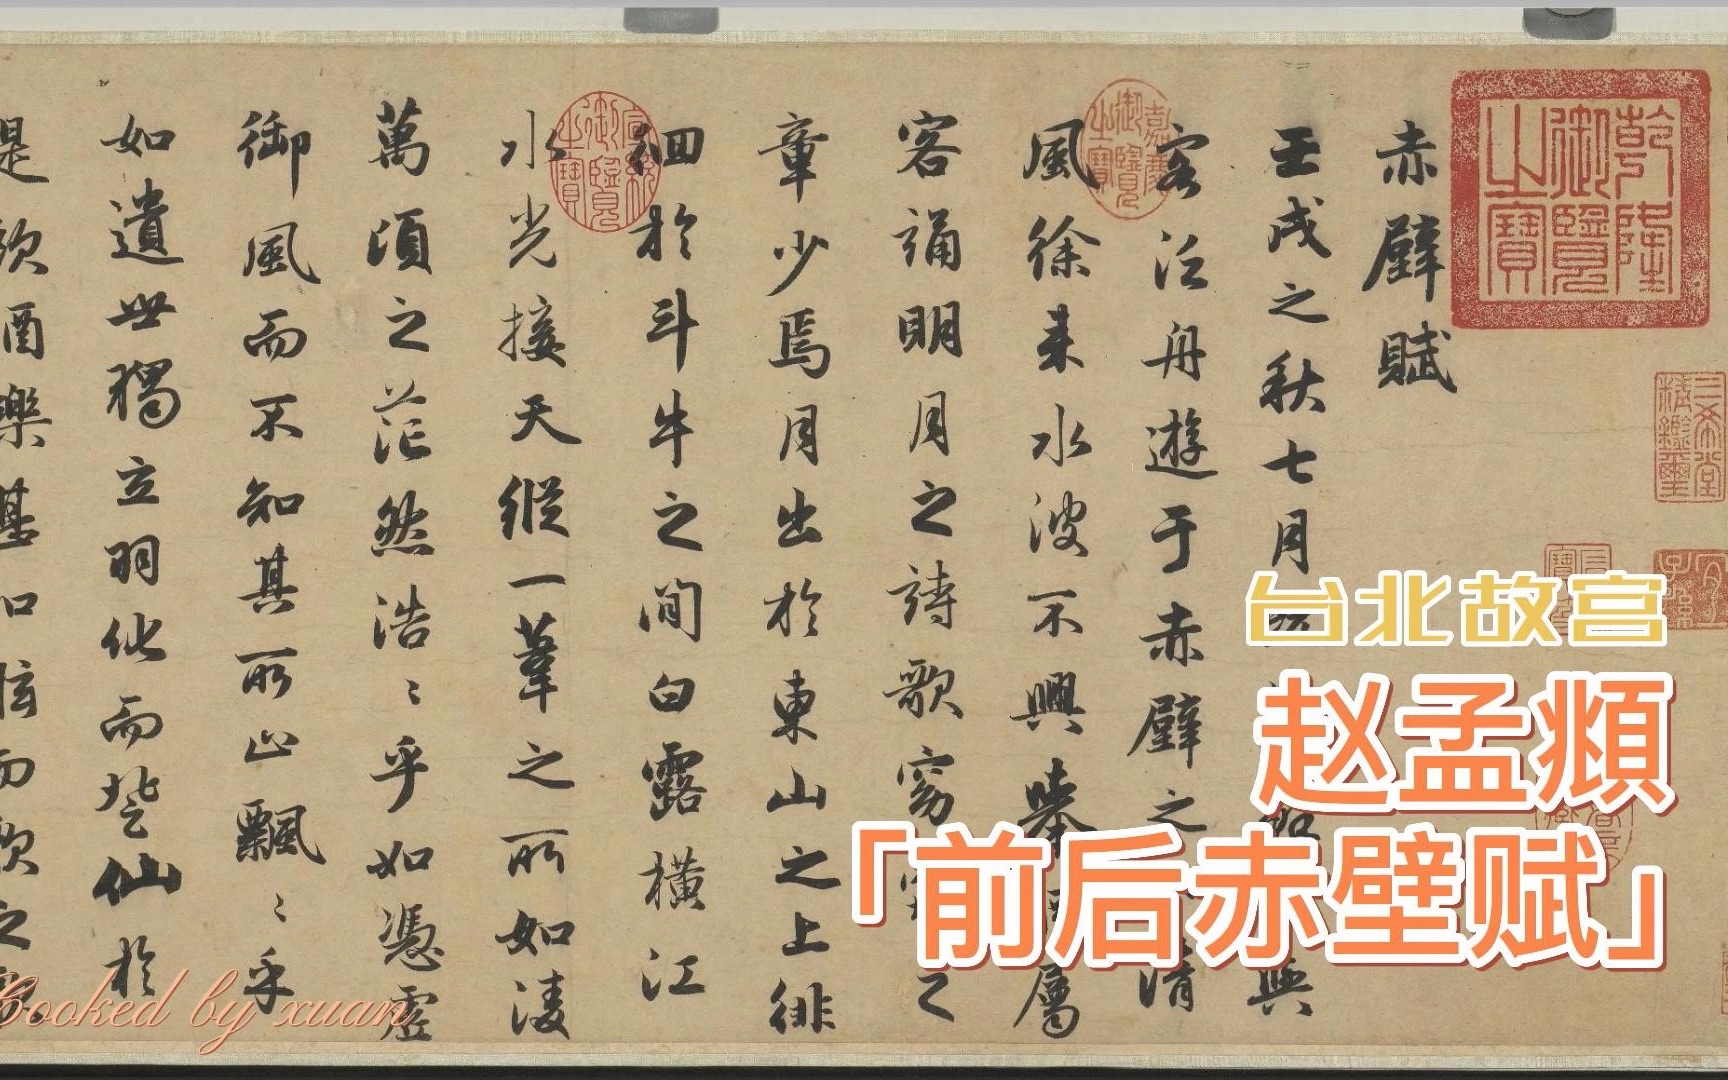 乾隆御覽之寶
三希堂精鑑璽
宜子孫
赤壁賦
壬戌之秋七月 與
客泛舟遊于赤壁之 清
風徐来水波不興舉 屬
嘉慶御覽之寶
客誦明月之詩歌窈 之
章少焉月出於東山之上徘
徊於斗牛之間白露橫江
宣統御覽之寶
水光接天縱一葦之所如淩
萬頃之茫然浩〻乎如憑虛
御風而不知其所止飄〻乎
如遺世獨立羽化而登仙於
是飲酒樂甚扣舷而歌之
台北故宫
赵孟頫
「前后赤壁赋」
Cooked by xuan